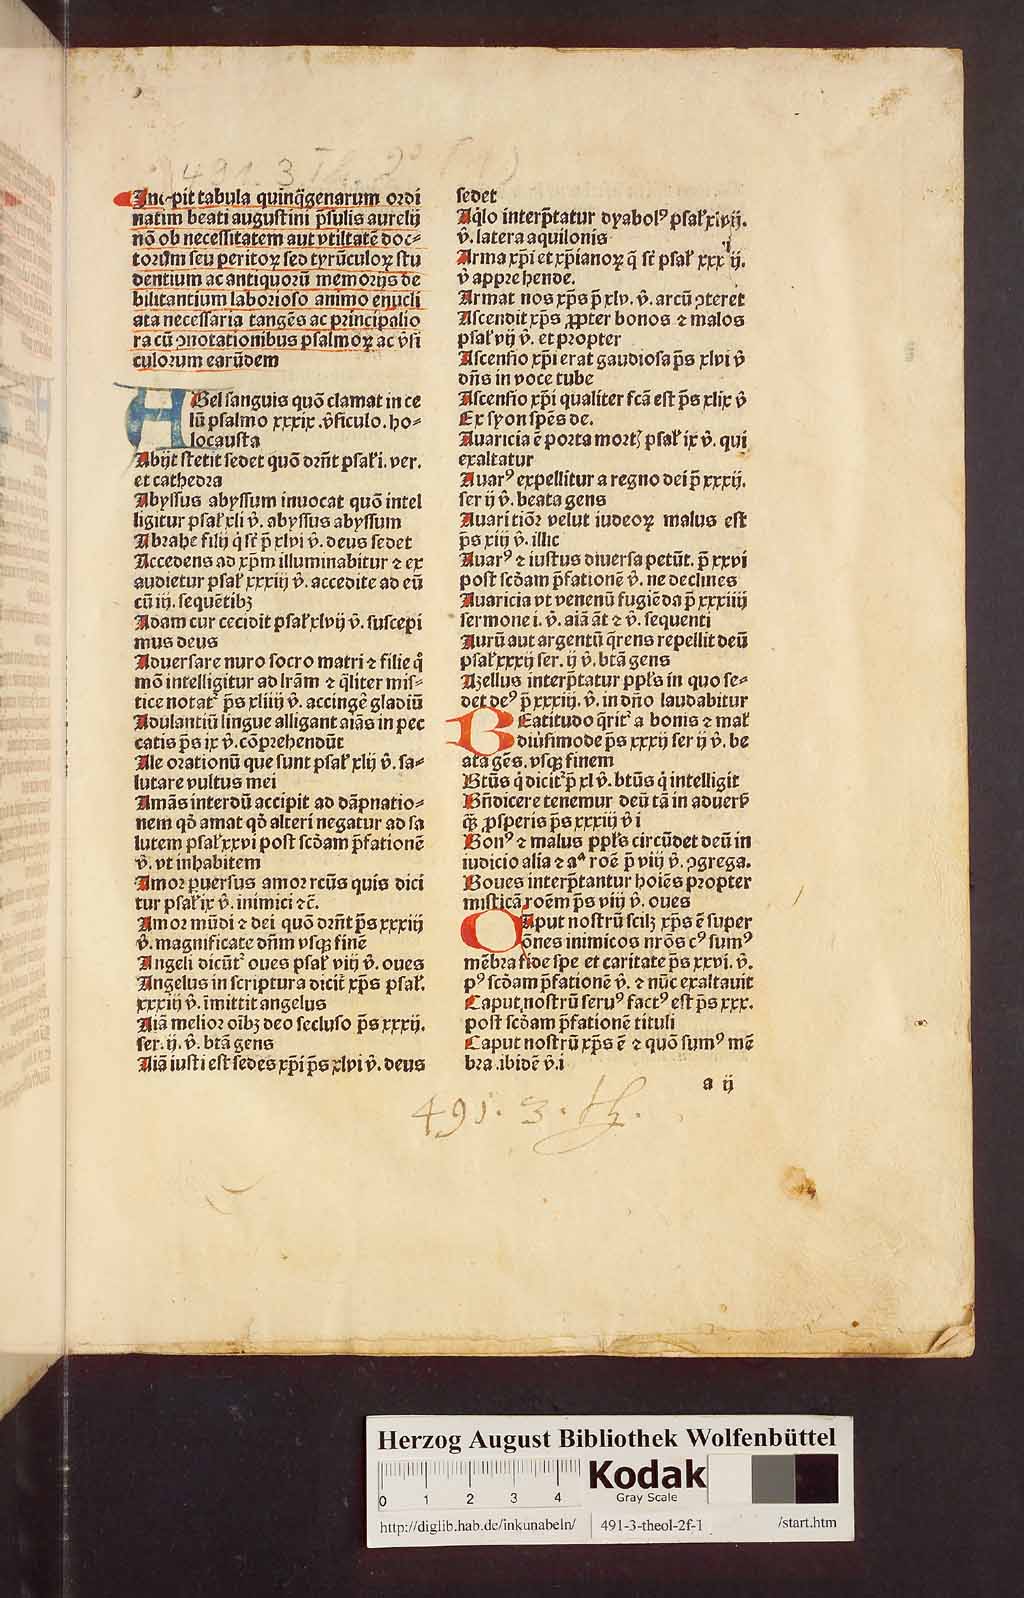 491. 3 Th. 2°
Incipit tabula quinq̃genarum ordi
natim beati augustini p̃sulis aurelij
nō ob necessitatem aut vtiltatē doc⸗
torum seu peritoꝝ sed tyrūculoꝝ stu
dentium ac antiquorū memorijs de
bilitantium laborioso animo enucli
ata necessaria tangēs ac principalio
ra cū ꝯnotationibus psalmoꝝ ac v̄si
culorum earūdem
ABel sanguis quō clamat in ce
lū psalmo xxxix .v̄ficulo. ho⸗
locausta
Abijt stetit sedet quō drn̄t psal̕ i. ver.
et cathedra
Abyssus abyssum inuocat quō intel
ligitur psal̕ xli v̄. abyssus abyssum
Abrahe filij q̇ st̄ p̄ xlvi v̄. deus sedet
Accedens ad xp̄m illuminabitur ⁊ ex
audietur psal̕ xxxiij v̄. accedite ad eū
cū iij. sequētibꝫ
Adam cur cecidit psal̕ xlvij v̄. suscepi
mus deus
Aduersare nuro socro matri ⁊ filie qͦ
mō intelligitur ad lr̄am ⁊ q̄liter mis⸗
tice notat᷑ p̄s xliiij v̄. accingē gladiū
Adulantiū lingue alligant aīas in pec
catis p̄s ix v̄. cōprehendūt
Ale orationū que sunt psal̕ xlij v̄. sa⸗
lutare vultus mei
Amās interdū accipit ad dāpnatio⸗
nem qd̕ amat qd̕ alteri negatur ad sa
lutem psal̕ xxvi post scd̄am p̄fationē
v̄. vt inhabitem
Amor puersus amor rcūs quis dici
tur psal̕ ix v̄. inimici ⁊c̄.
Amor mūdi ⁊ dei quō drn̄t p̄s xxxiij
v̄. magnificate dn̄m vsqꝫ finē
Angeli dicūt᷑ oues psal̕ viij v̄. oues
Angelus in scriptura dicit᷑ xp̄s psal̕.
xxxiij v̄. īmittit angelus
Aīa melior oībꝫ deo secluso p̄s xxxij.
ser. ij. v̄. btā gens
Aīa iusti est sedes xp̄i p̄s xlvi v̄. deus
sedet
Aq̇lo interp̄tatur dyabolꝰ psal̕ xlvij.
v̄. latera aquilonis
Arma xp̄i et xp̄ianoꝝ q̇ st̄ psal̕ xxxiiij.
v̄ apprehende.
Armat nos xp̄s p̄ xlv. v̄. arcū ꝯteret
Ascendit xp̄s ꝓpter bonos ⁊ malos
psal̕ vij v̄. et propter
Ascensio xp̄i erat gaudiosa p̄s xlvi v̄
dn̄s in voce tube
Ascensio xp̄i qualiter fcā est p̄s xlix v̄
Ex syon spēs de.
Auaricia ē porta mortꝭ psal̕ ix v̄. qui
exaltatur
Auarꝰ expellitur a regno dei p̄ xxxij.
ser ij v̄. beata gens
Auari tiōr velut iudeoꝝ malus est
p̄s xiij v̄. illic
Auarꝰ ⁊ iustus diuersa petūt. p̄ xxvi
post scd̄am p̄fationē v̄. ne declines
Auaricia vt venenū fugiēda p̄ xxxiiij
sermone i. v̄. aīā āt ⁊ v̄. sequenti
Aurū aut argentū q̄rens repellit deū
psal̕ xxxij ser. ij v̄. btā gens
Azellus interp̄tatur ppl̕s in quo se⸗
det deꝰ p̄ xxxiij. v̄. in dn̄o laudabitur
BEatitudo q̄rit᷑ a bonis ⁊ mal̕
diūsimode p̄s xxxij ser ij v̄. be
ata gēs. vsqꝫ finem
Btūs q̇ dicit᷑ p̄ xl v̄. btūs q̇ intelligit
Bn̄dicere tenemur deū tā in aduers̕
qꝫ ꝓsperis p̄s xxxiij v̄ i
Bonꝰ ⁊ malus ppl̕s circūdet deū in
iudicio alia ⁊ aᵃ roē p̄ viij v̄. ꝯgrega.
Boues interp̄tantur hoiēs propter
misticā roēm p̄s viij v̄. oues
CAput nostrū scilꝫ xp̄s ē super
ōnes inimicos nrōs cꝰ sumꝰ
mēbra fide spe et caritate p̄s xxvi. v̄.
pꝰ scd̄am p̄fationē v̄. ⁊ nūc exaltauit
Caput nostrū seruꝰ factꝰ est p̄s xxx.
post scd̄am p̄fationē tituli
Caput nostrū xp̄s ē ⁊ quō sumꝰ mē
bra .ibidē v̄. i
a ij
491. 3. th.
Herzog August Bibliothek Wolfenbüttel
0 1 2 3 4
Kodak
Gray Scale
http://diglib.hab.de/inkunabeln/ 491-3-theol-2f-1 /start.htm